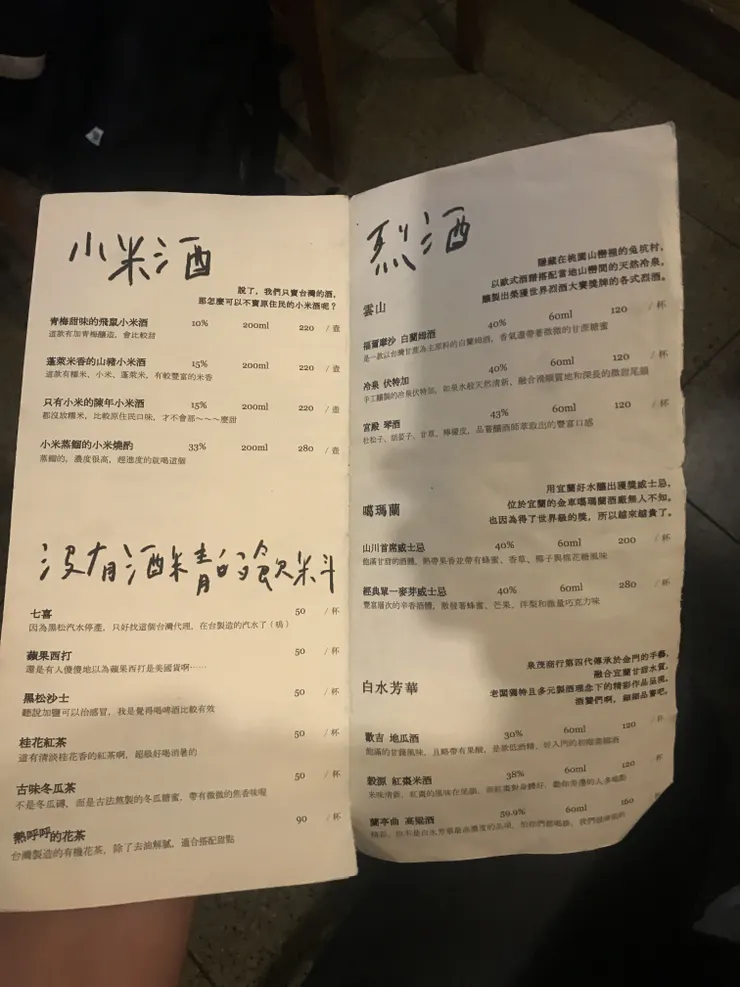 小米酒
說了，我們只賣台灣的酒，
那怎麼可以不賣原住民的小米酒呢？
青梅甜味的飛鼠小米酒 10% 200ml 220 / 壺
這款有加青梅釀造，會比較甜
蓬萊米香的山豬小米酒 15% 200ml 220 / 壺
這款有糯米、小米、蓬萊米，有較豐富的米香
只有小米的陳年小米酒 15% 200ml 220 / 壺
都沒放糯米，比較原住民口味，才不會那~~~麼甜
小米蒸餾的小米燒酌 33% 200ml 280 / 壺
蒸餾的，濃度很高，趕進度的就喝這個
沒有酒精的飲料
七喜 50 / 杯
因為黑松汽水停產，只好找這個台灣代理，在台製造的汽水了（嗚）
蘋果西打 50 / 杯
還是有人傻傻地以為蘋果西打是美國貨啊⋯⋯
黑松沙士 50 / 杯
聽說加鹽可以治感冒，我是覺得喝啤酒比較有效
桂花紅茶 50 / 杯
這有清淡桂花香的紅茶啊，超級好喝消暑的
古味冬瓜茶 50 / 杯
不是冬瓜磚，而是古法熬製的冬瓜糖蜜，帶有微微的焦香味喔
熱呼呼的花茶 90 / 杯
台灣製造的有機花茶，除了去油解膩，適合搭配甜點
烈酒
隱藏在桃園山巒裡的兔坑村，
以歐式酒譜搭配當地山巒間的天然冷泉，
釀製出榮獲世界烈酒大賽獎牌的各式烈酒。
雲山
福爾摩沙 白蘭姆酒 40% 60ml 120 / 杯
是一款以台灣甘蔗為主原料的白蘭姆酒，香氣溫帶著微微的甘蔗糖蜜
冷泉 伏特加 40% 60ml 120 / 杯
手工釀製的冷泉伏特加，如泉水般天然清新，融合滑順質地和深長的微甜尾韻
宮殿 琴酒 43% 60ml 120 / 杯
杜松子、胡荽子、甘草、檸檬皮，品著釀酒師萃取出的豐富口感
用宜蘭好水釀出獲獎威士忌，
位於宜蘭的金車噶瑪蘭酒廠無人不知。
也因為得了世界級的獎，所以越來越貴了。
噶瑪蘭
山川首席威士忌 40% 60ml 200 / 杯
飽滿甘甜的酒體，熱帶果香並帶有蜂蜜、香草、椰子與棉花糖風味
經典單一麥芽威士忌 40% 60ml 280 / 杯
豐富層次的辛香酒體，散發著蜂蜜、芒果、洋梨和微量巧克力味
泉茂商行第四代傳承於金門的手藝，
融合宜蘭甘甜水質，
老闆獨特且多元製酒理念下的精彩作品呈現，
酒饕們啊，細細品嘗吧。
白水芳華
歡吉 地瓜酒 30% 60ml 120 / 杯
飽滿的甘藷風味，且略帶有果酸，是款低酒精，好入門的
穀源 紅棗米酒 38% 60ml 120 / 杯
米味清新，紅棗的風味在尾韻，
蘭亭曲 高粱酒 59.9% 60ml 160 / 杯